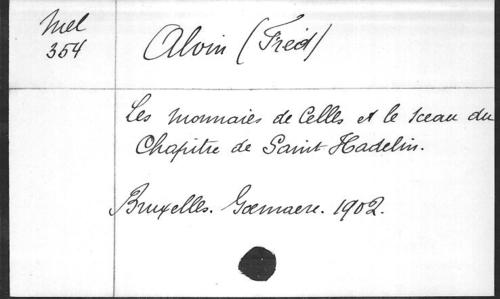 Mel
354
Alvin (Fréd)
Les monnaies de Celles et le sceau du
Chapitre de Saint Hadelin.
Bruxelles. Goemaere. 1902.